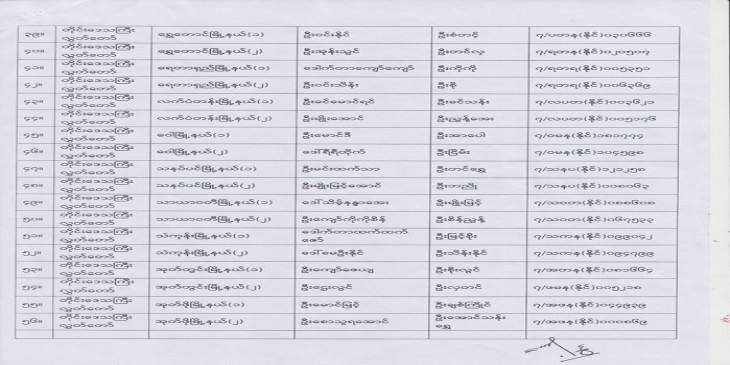 ၃၉။ တိုင်းဒေသကြီး လွှတ်တော် ရွှေတောင်မြို့နယ်(၁) ဦးဝင်းနိုင် ဦးစံတင့် ၇/ပတန(နိုင်)၀၃၀၆၆၆
၄၀။ တိုင်းဒေသကြီး လွှတ်တော် ရွှေတောင်မြို့နယ်(၂) ဦးအုန်းလွင် ဦးတင်လှ ၇/ရတန(နိုင်)၀၂၀၅၀၇
၄၁။ တိုင်းဒေသကြီး လွှတ်တော် ရေတာရှည်မြို့နယ်(၁) ဒေါက်တာကျော်ကျော် ဦးကိုကို ၇/ရတရ(နိုင်)၀၀၅၃၅၁
၄၂။ တိုင်းဒေသကြီး လွှတ်တော် ရေတာရှည်မြို့နယ်(၂) ဦးဝင်းသိန်း ဦးစိူ ၇/ရတရ(နိုင်)၀၀၆၃၆၉
၄၃။ တိုင်းဒေသကြီး လွှတ်တော် လက်ပံတန်းမြို့နယ်(၁) ဦးခင်မောင်ရင် ဦးခင်သန်း ၇/လပတ(နိုင်)၀၀၃၆၂၁
၄၄။ တိုင်းဒေသကြီး လွှတ်တော် လက်ပံတန်းမြို့နယ်(၂) ဦးမျိုးအောင် ဦးညွန့်အေး ၇/လပတ(နိုင်)၀၀၅၁၇၆
၄၅။ တိုင်းဒေသကြီး လွှတ်တော် ဝေါမြို့နယ်(၁) ဦးမောင်ဒီ ဦးအောပေါ ၇/ဝမန(နိုင်)၁၈၀၇၇၄
၄၆။ တိုင်းဒေသကြီး လွှတ်တော် ဝေါမြို့နယ်(၂) ဒေါ်ရီရီထိုက် ဦးငြိမ်း ၇/ဝမန(နိုင်)၁၀၄၅၉၈
၄၇။ တိုင်းဒေသကြီး လွှတ်တော် သနပ်ပင်မြို့နယ်(၁) ဦးမင်းထက်သာ ဦးတင်ရွှေ ၇/သနပ(နိုင်)၁၂၁၂၅၈
၄၈။ တိုင်းဒေသကြီး လွှတ်တော် သနပ်ပင်မြို့နယ်(၂) ဦးမျိုးမြင့်အောင် ဦးဘညို ၇/သနပ(နိုင်)၀၀၈၀၆၃
၄၉။ တိုင်းဒေသကြီး လွှတ်တော် သာယာဝတီမြို့နယ်(၁) ဒေါ်သိင်္ဂနန္ဒာအေး ဦးမျိုးမြင့် ၇/သဝတ(နိုင်)၀၈၈၆၀၈
၅၀။ တိုင်းဒေသကြီး လွှတ်တော် သာယာဝတီမြို့နယ်(၂) ဦးကျော်ကိုကိုစိန် ဦးစိန်ညွန့် ၇/သဝတ(နိုင်)၀၆၇၅၃၃
၅၁။ တိုင်းဒေသကြီး လွှတ်တော် သဲကုန်းမြို့နယ်(၁) ဒေါက်တာထက်ထက်ဇော် ဦးမြင့်စိုး ၇/သကန(နိုင်)၀၉၉၀၄၂
၅၂။ တိုင်းဒေသကြီး လွှတ်တော် သဲကုန်းမြို့နယ်(၂) ဒေါ်မေဦးနိုင် ဦးသိန်းနိုင် ၇/သကန(နိုင်)၀၉၄၇၉၉
၅၃။ တိုင်းဒေသကြီး လွှတ်တော် အုတ်တွင်းမြို့နယ်(၁) ဦးကျော်ဇေယျ ဦးစိုးလွင် ၇/အတန(နိုင်)၀၈၁၆၆၄
၅၄။ တိုင်းဒေသကြီး လွှတ်တော် အုတ်တွင်းမြို့နယ်(၂) ဦးငွေလွင် ဦးလှတင် ၇/ဖမန(နိုင်)၀၀၅၂၁၈
၅၅။ တိုင်းဒေသကြီး လွှတ်တော် အုတ်ဖိုမြို့နယ်(၁) ဦးမောင်မြင့် ဦးချစ်ကြိုင် ၇/အဖန(နိုင်)၀၄၄၉၃၉
၅၆။ တိုင်းဒေသကြီး လွှတ်တော် အုတ်ဖိုမြို့နယ်(၂) ဦးစောသူရအောင် ဦးအောင်သန်းရွှေ ၇/အဖန(နိုင်)၀၀၀၈၆၉